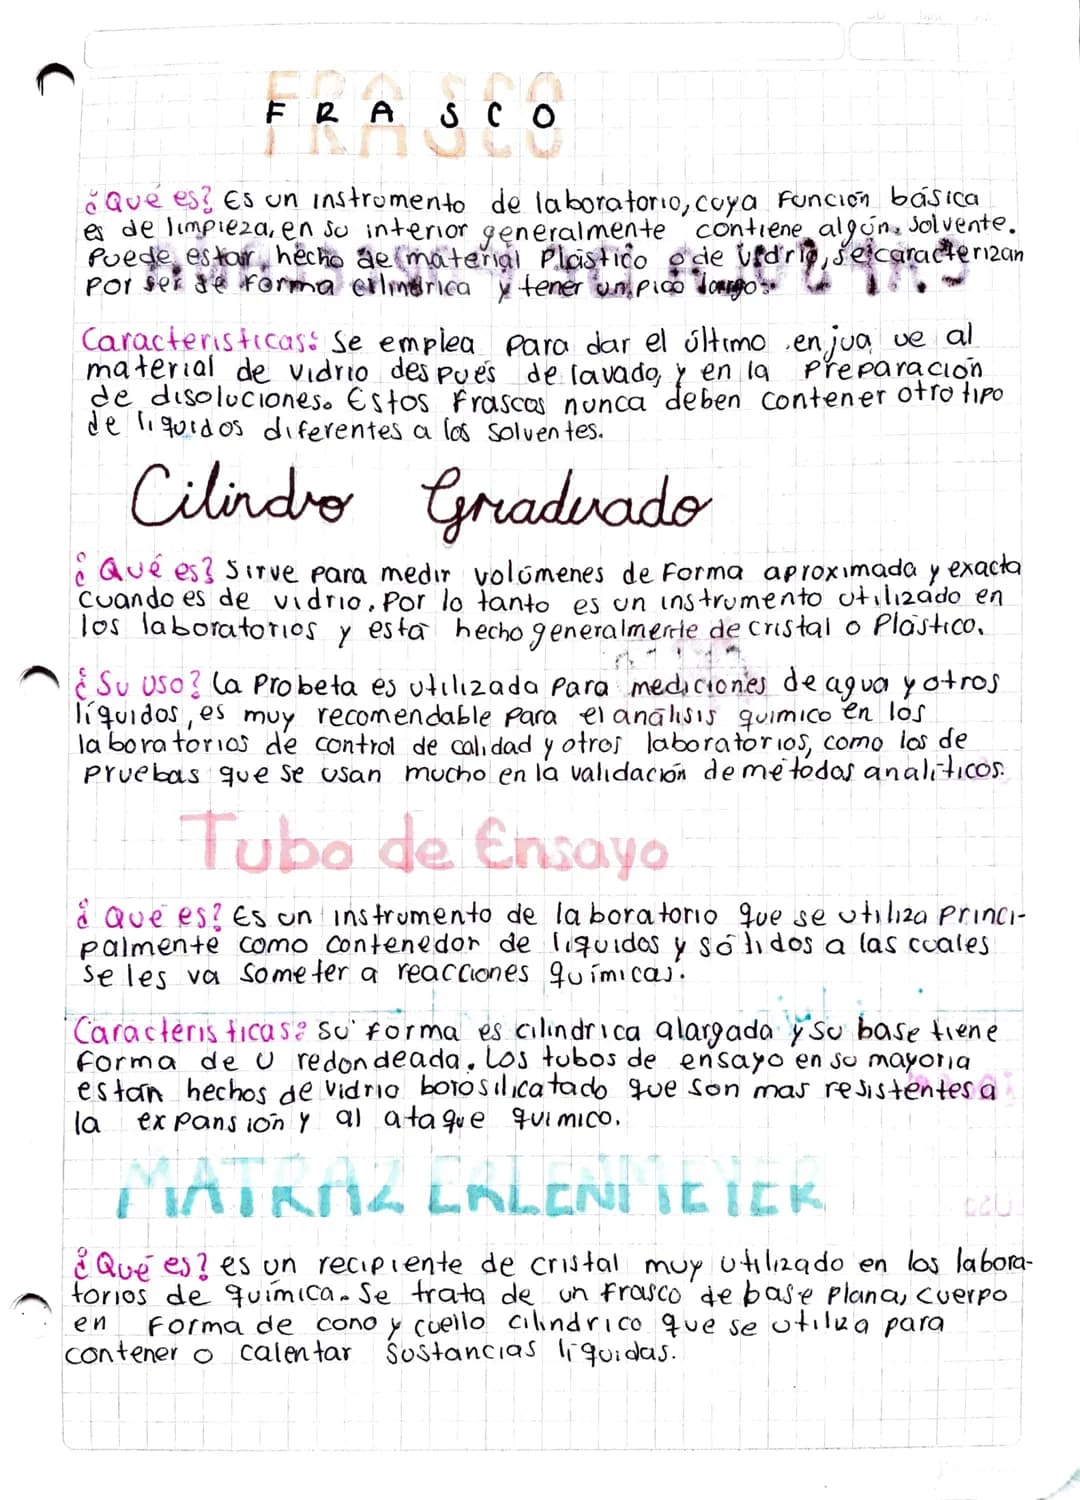 FRASCO
¿Qué es? Es un instrumento de laboratorio, cuya Función básica
es de limpieza, en su interior generalmente contiene algún solvente.
Puede estar hecho de material Plástico o de vidrio, se caracterizan
Por ser de forma cilindrica y tener un pico largo.
Caracteristicas: Se emplea para dar el último enjua ue al
material de vidrio después de lavado, y en la Preparación
de disoluciones. Estos Frascos nunca deben contener otro tipo
de liquidos diferentes a los solventes.
Cilindro Graduado
¿Qué es? Sirve para medir volúmenes de Forma aproximada y exacta
cuando es de vidrio. Por lo tanto es un instrumento utilizado en
los laboratorios y está hecho generalmente de cristal o Plástico.
¿Su uso? La Probeta es utilizada Para mediciones de agua y otros
líquidos, es muy recomendable para el análisis quimico en los
laboratorios de control de calidad y otros laboratorios, como los de
Pruebas que se usan mucho en la validación de metodos analíticos.
Tubo de Ensayo
¿Qué es? Es un instrumento de laboratorio que se utiliza Princi-
palmente como contenedor de liquidos y sólidos a las cuales
se les va someter a reacciones químicas.
Caracteristicas: su forma es cilindrica alargada y su base tiene
forma de U redondeada. Los tubos de ensayo en su mayoria
están hechos de vidrio borosilicatado que son mas resistentes a
la expansión y al ataque quimico.
MATRAZ ERLENMEYER
¿Qué es? es un recipiente de cristal muy utilizado en los labora-
torios de química. Se trata de un Frasco de base plana, cuerpo
en Forma de cono y cuello cilindrico que se utiliza para
contener o calentar Sustancias líquidas.